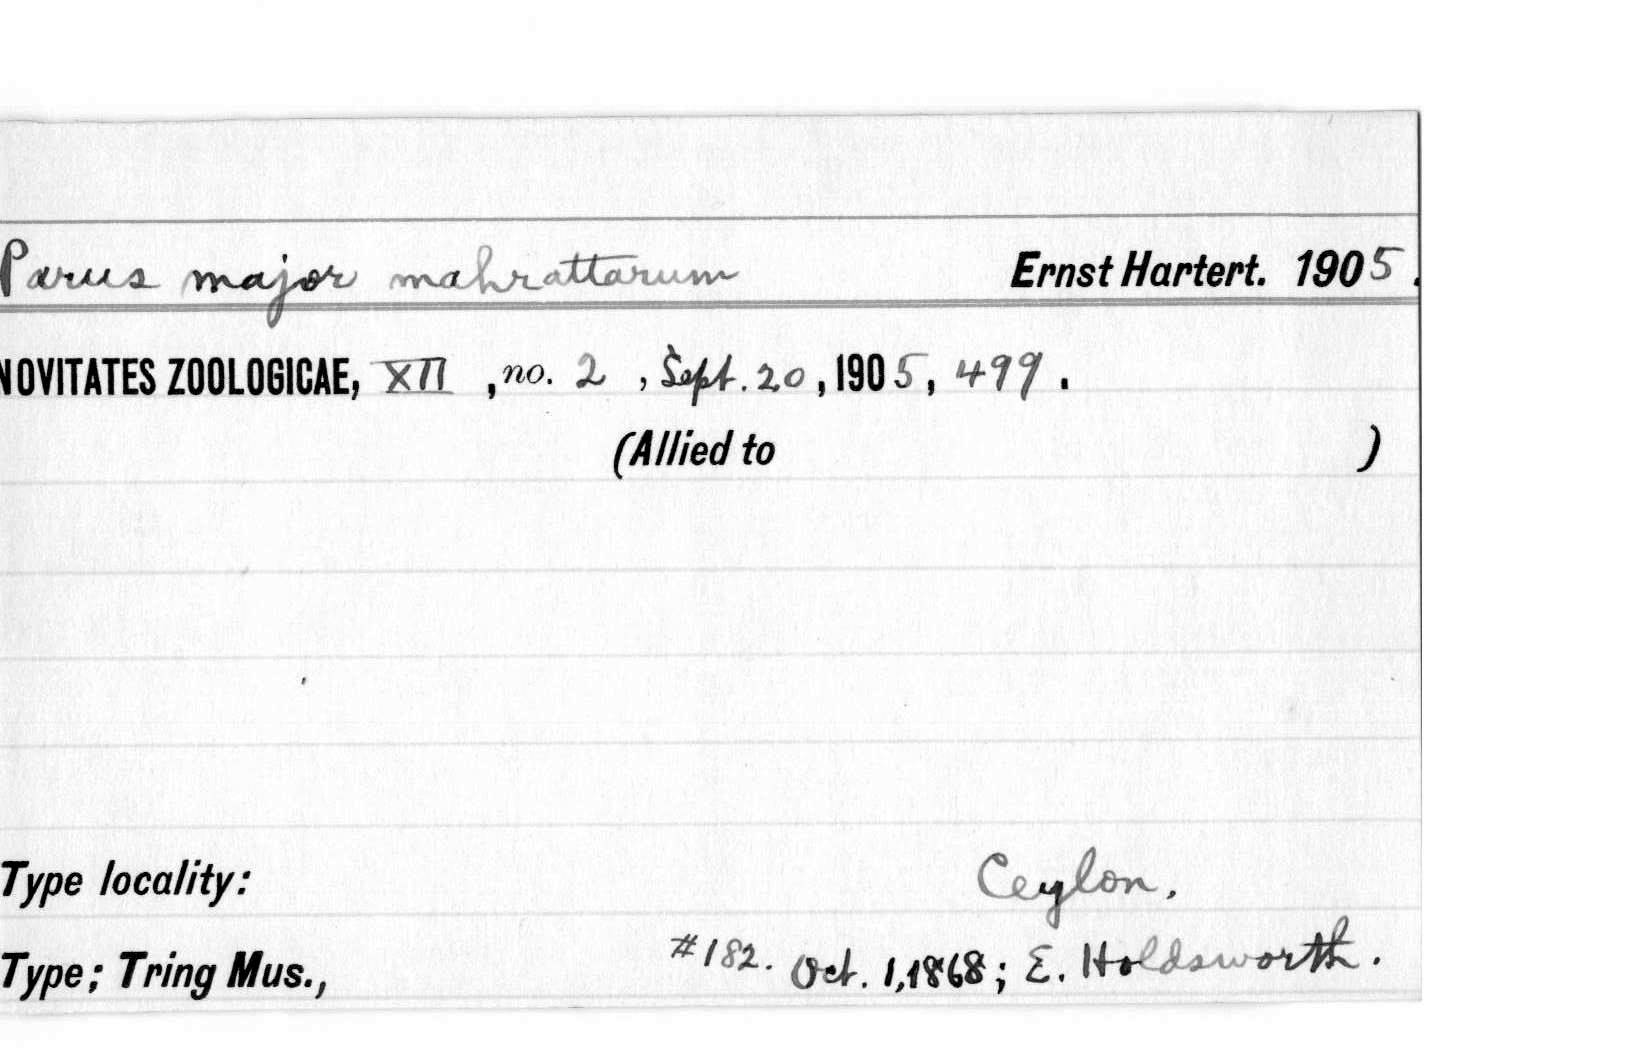 Parus major mahrattarum Ernst Hartert. 1905.
NOVITATES ZOOLOGICAE, XII, no. 2, Sept. 20, 1905, 499.
(Allied to )
Type locality: Ceylon.
Type; Tring Mus., #182. Oct. 1, 1868; E. Holdsworth.